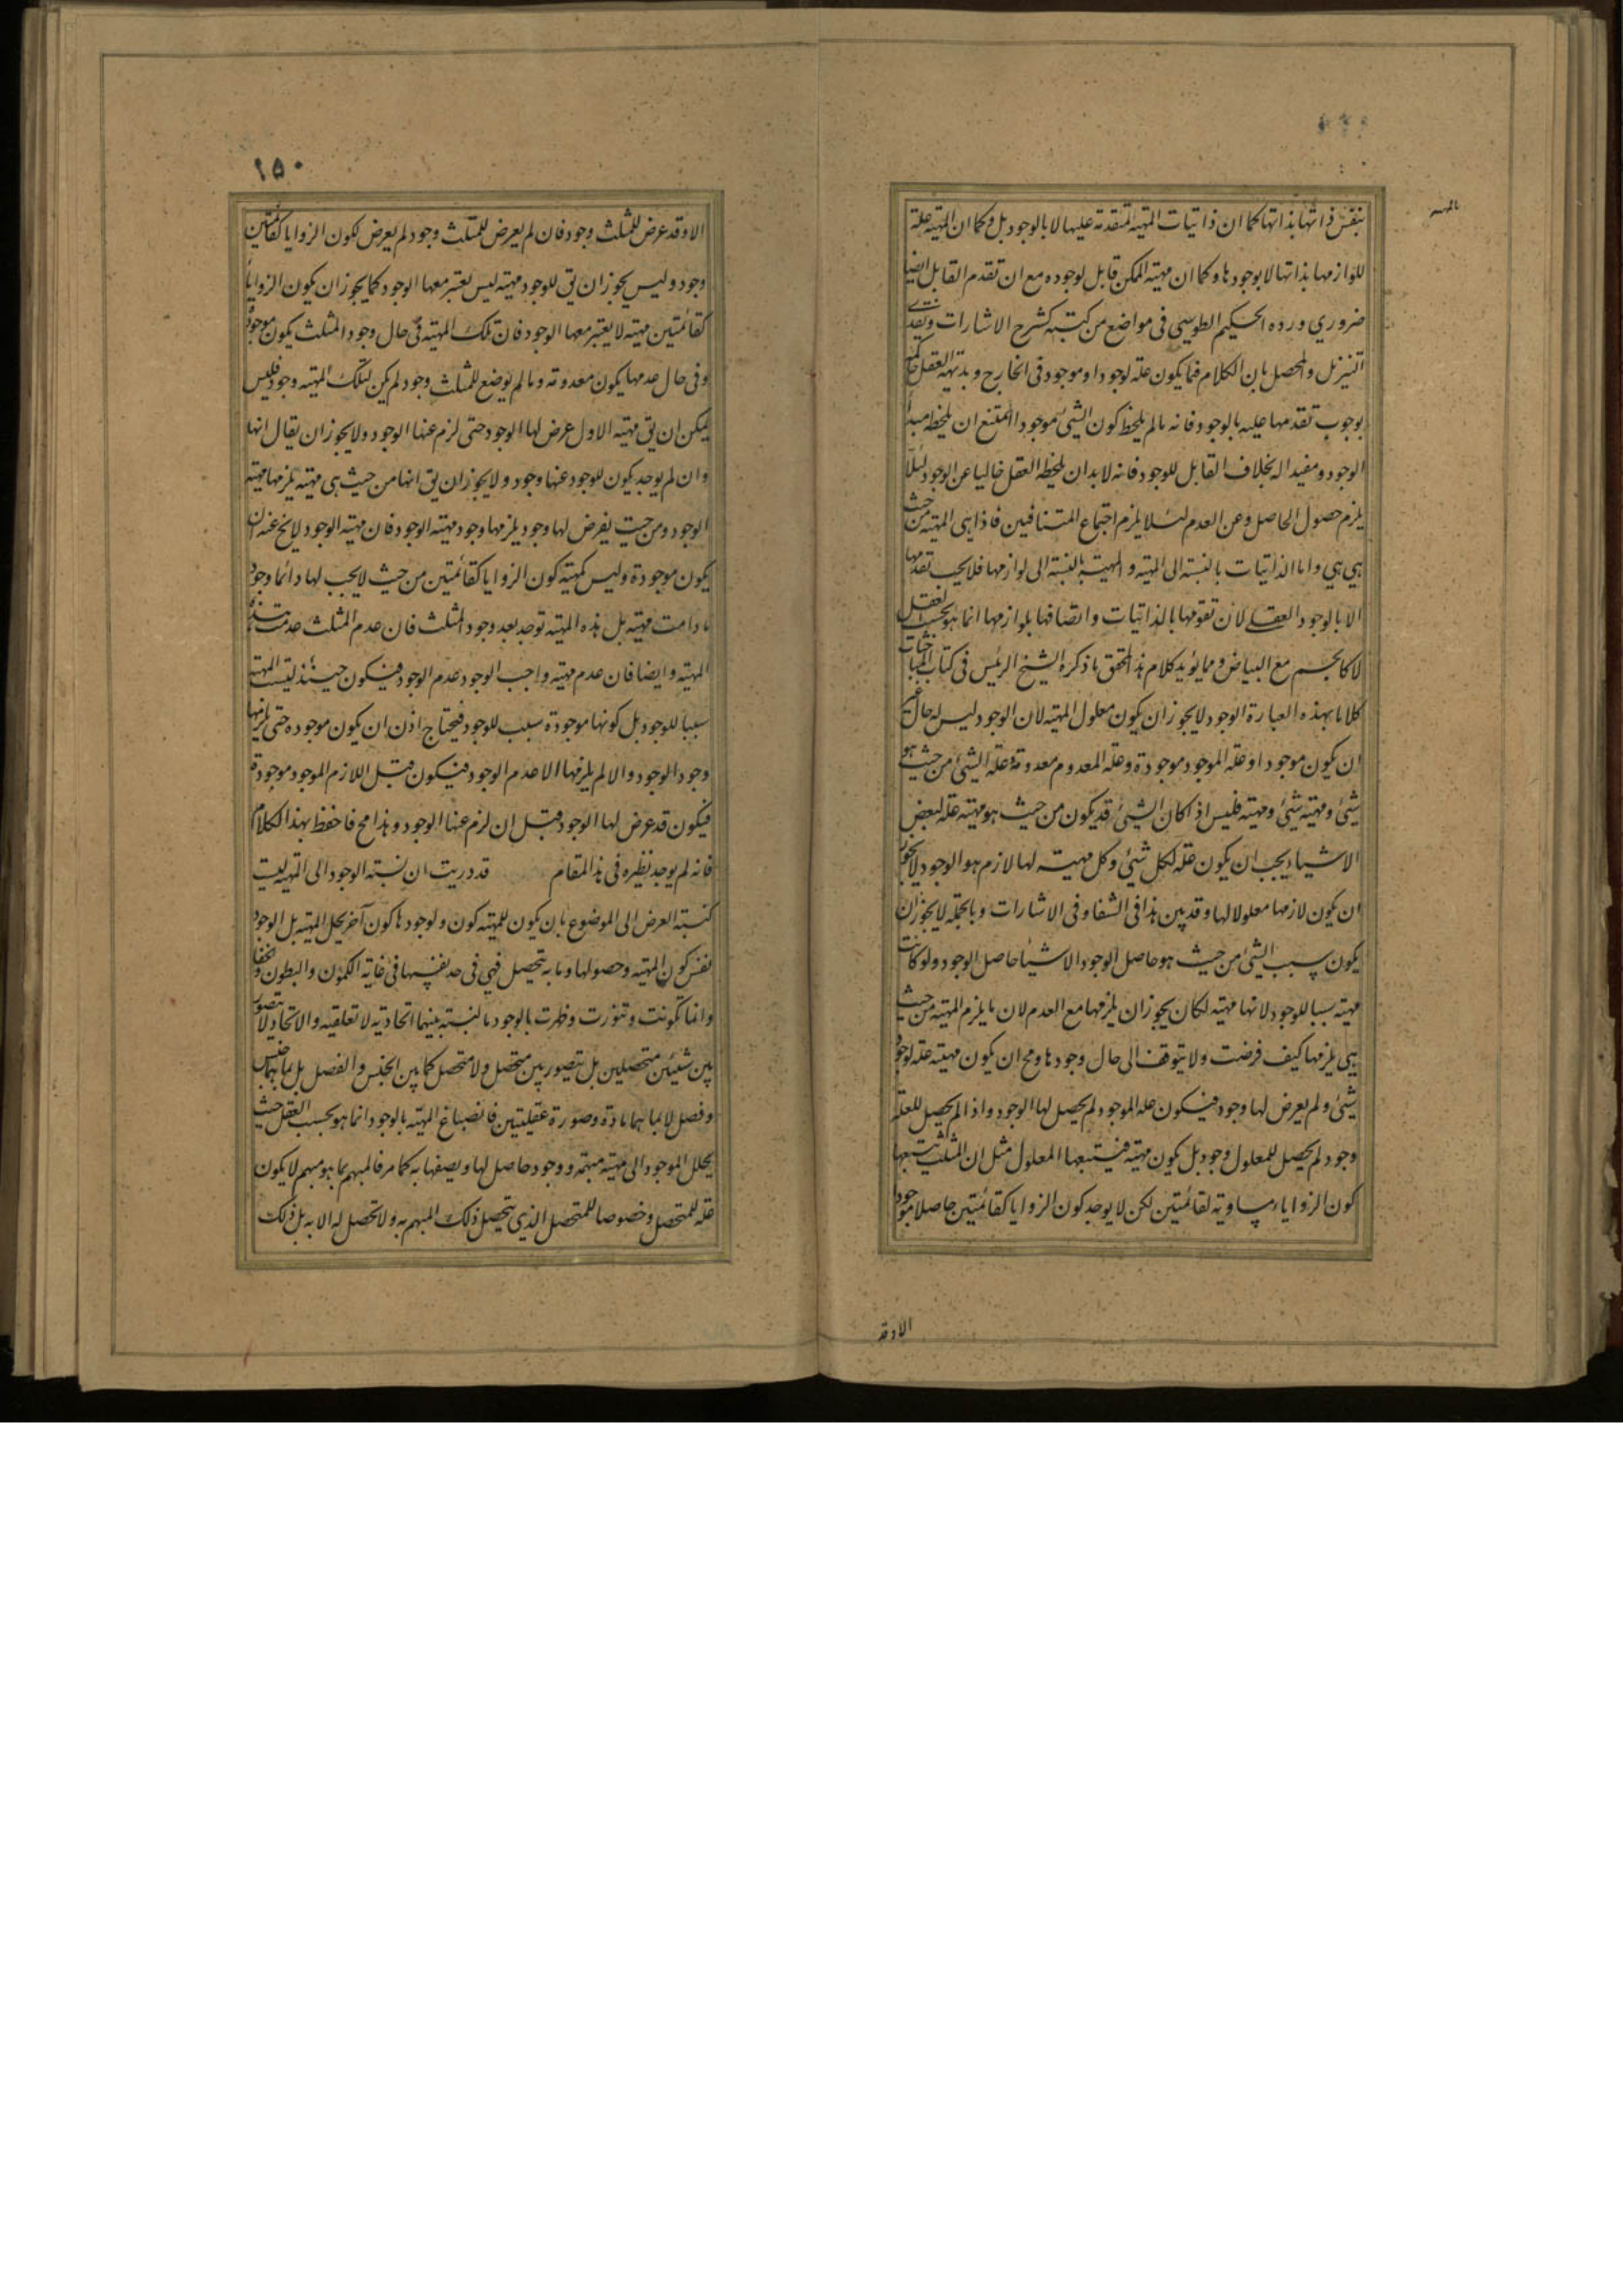 بنفس ذاتها بذاتها كما ان ذاتيات المهية متقدمة عليها لا بالوجود بل وكما ان المهية علة
للوازمها بذاتها لا بوجودها وكما ان مهية الممكن قابل لوجوده مع ان تقدم القابل ايضا
ضروري ورده الحكيم الطوسي في مواضع من كتبه كشرح الاشارات ونقدي
التنزيل والمحصل بان الكلام فيما يكون علة لوجود او موجود في الخارج وبديهة العقل حاكمة
بوجوب تقدمها عليه بالوجود فانه ما لم يلحظ كون الشيء موجودا امتنع ان يلحظه مبدأ
الوجود ومفيدا له بخلاف القابل للوجود فانه لا بد ان يلحظه العقل خاليا عن الوجود لئلا
يلزم حصول الحاصل وعن العدم لئلا يلزم اجتماع المتنافيين فاذا هي المهية من حيث
هي هي واما الذاتيات بالنسبة الى المهية والمهية بالنسبة الى لوازمها فلا يجب تقدمها
الا بالوجود العقلي لان تقومها بالذاتيات واتصافها بلوازمها انما هو بحسب العقل
لا كالجسم مع البياض ومما يؤيد كلام هذا المحقق ما ذكره الشيخ الرئيس في كتاب المباحثات
كلاما بهذه العبارة الوجود لا يجوز ان يكون معلول المهية لان الوجود ليس له حال غير
ان يكون موجودا وعلة الموجود موجودة وعلة المعدوم معدومة وعلة الشيء من حيث هو
شيء ومهية شيء ومهية فليس اذا كان الشيء قد يكون من حيث هو مهية علة لبعض
الاشياء يجب ان يكون علة لكل شيء وكل مهية لها لازم هو الوجود لا يجوز
ان يكون لازمها معلولا لها وقد بين هذا في الشفا وفي الاشارات وبالجملة لا يجوز ان
يكون سبب الشيء من حيث هو حاصل الوجود الا شيئا حاصل الوجود ولو كانت
مهية سببا للوجود لانها مهية لكان يجوز ان يلزمها مع العدم لان ما يلزم المهية من حيث
هي يلزمها كيف فرضت ولا يتوقف الى حال وجودها ومح ان يكون مهية علة لوجود
شيء ولم يعرض لها وجود فيكون علة الموجود لم يحصل لها الوجود واذا لم يحصل للعلة
وجود لم يحصل للمعلول وجود بل يكون مهية فيتبعها المعلول مثل ان المثلث يتبعها
كون الزوايا مساوية لقائمتين لكن لا يوجد كون الزوايا كقائمتين حاصلا موجودا
الا وقد
١٥٠
الا وقد عرض للمثلث وجود فان لم يعرض للمثلث وجود لم يعرض لكون الزوايا كقائمتين
وجود وليس يجوز ان يق للوجود مهية ليس يعتبر معها الوجود كما يجوز ان يكون الزوايا
كقائمتين مهية لا يعتبر معها الوجود فان تلك المهية في حال وجود المثلث يكون موجودة
وفي حال عدمها يكون معدومة وما لم يوضع للمثلث وجود لم يكن لتلك المهية وجود فليس
يمكن ان يق مهية الاول عرض لها الوجود حتى لزم عنها الوجود ولا يجوز ان يقال انها
وان لم يوجد يكون للوجود عنها وجود ولا يجوز ان يق انها من حيث هي مهية يلزمها مهية
الوجود ومن حيث يفرض لها وجود يلزمها وجود مهية الوجود فان مهية الوجود لا يخ عنه ان
يكون موجودة وليس كمهية كون الزوايا كقائمتين من حيث لا يجب لها دائما وجود
ما دامت مهية بل هذه المهية توجد بعد وجود المثلث فان عدم المثلث عدمت هذه
المهية وايضا فان عدم مهية واجب الوجود عدم الوجود فيكون حينئذ ليست المهية
سببا للوجود بل كونها موجودة سبب للوجود فيحتاج اذن ان يكون موجودة حتى يلزمها
وجود الوجود والا لم يلزمها الا عدم الوجود فيكون قبل اللازم الموجود موجودة
فيكون قد عرض لها الوجود قبل ان لزم عنها الوجود وهذا مح فاحفظ بهذا الكلام
فانه لم يوجد نظيره في هذا المقام قد دريت ان نسبة الوجود الى المهية ليست
كنسبة العرض الى الموضوع بان يكون للمهية كون ولوجودها كون آخر يحل المهية بل الوجود
نفس كون المهية وحصولها وما به يتحصل فهي في حد نفسها في غاية الكمون والبطون والخفا
وانما تكونت وتنورت وظهرت بالوجود فالنسبة بينهما اتحادية لا تعلقية والاتحاد لا يتصور
بين شيئين متحصلين بل يتصور بين متحصل ولا متحصل كما بين الجنس والفصل بل بما هما جنس
وفصل لا بما هما مادة وصورة عقليتين فانصباغ المهية بالوجود انما هو بحسب العقل حيث
يحلل الموجود الى مهية مبهمة ووجود حاصل لها ويصفها به كما مر فالمبهم بما هو مبهم لا يكون
علة للمتحصل وخصوصا للمتحصل الذي يتحصل ذلك المبهم به ولا تحصل له الا به بل ذلك